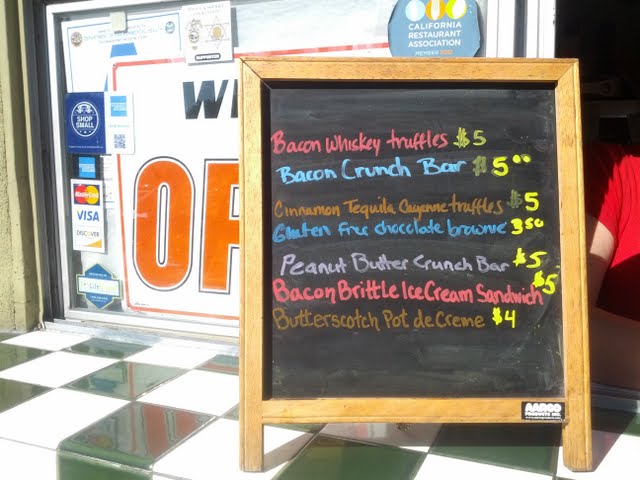 CALIFORNIA
RESTAURANT
ASSOCIATION
SUPPORTER
WE
OP
SHOP
SMALL
MasterCard
VISA
DISCOVER
Bacon Whiskey truffles $5
Bacon Crunch Bar $5⁰⁰
Cinnamon Tequila Cayenne truffles $5
Gluten Free chocolate brownie 3⁵⁰
Peanut Butter Crunch Bar $5
Bacon Brittle Ice Cream Sandwich $5
Butterscotch Pot de Creme $4
AARCO
PRODUCTS INC.